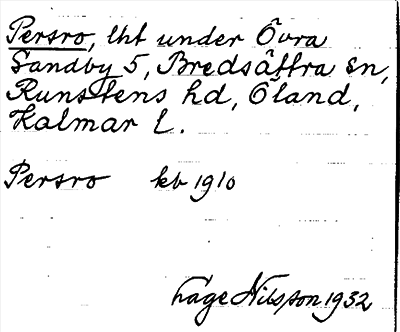 Persro, lht under Övra
Sandby 5, Bredsättra sn,
Runstens hd, Öland,
Kalmar l.
Persro kb 1910
Åage Nilsson 1932